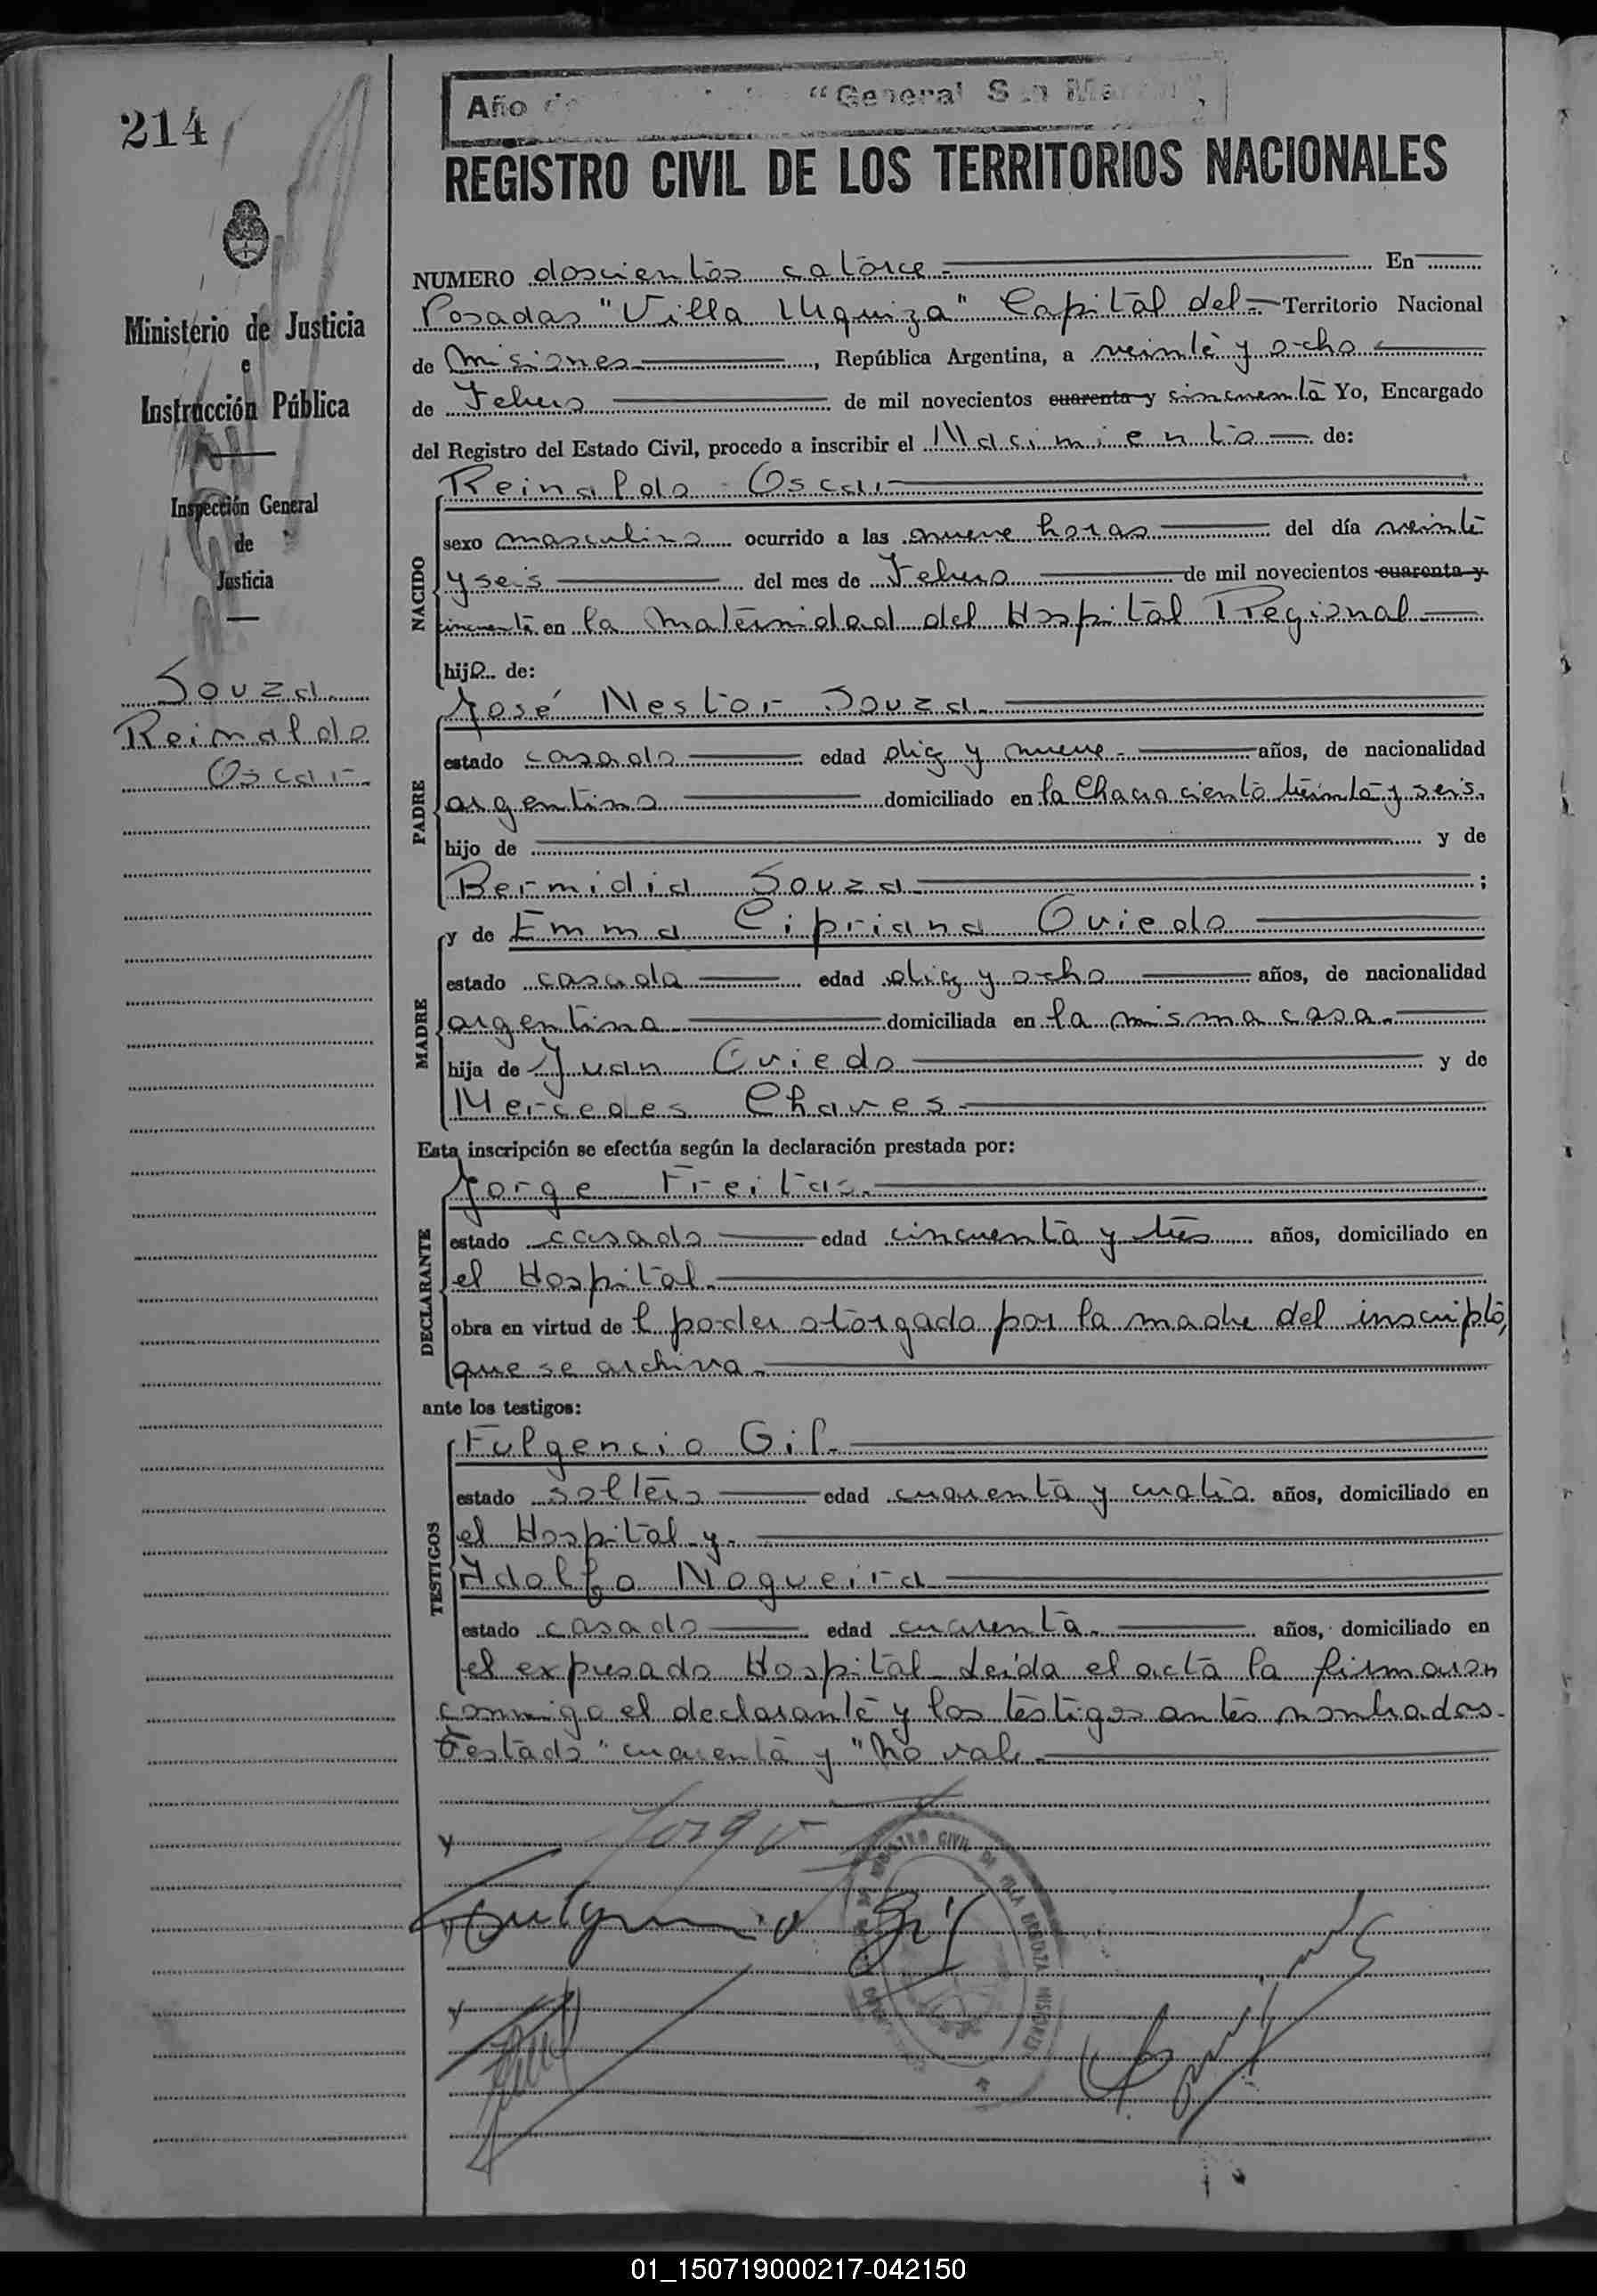 214
Año de "General San Martín",
REGISTRO CIVIL DE LOS TERRITORIOS NACIONALES
Ministerio de Justicia
e
Instrucción Pública
Inspección General
de
Justicia
Souza
Reinaldo
Oscar.
NUMERO doscientos catorce. En
Posadas "Villa Urquiza" Capital del Territorio Nacional
de Misiones, República Argentina, a veinte y ocho
de Febrero de mil novecientos cuarenta y sincuenta Yo, Encargado
del Registro del Estado Civil, procedo a inscribir el Nacimiento de:
NACIDO
Reinaldo Oscar
sexo masculino ocurrido a las nueve horas del día veinte
y seis del mes de Febrero de mil novecientos cuarenta y
cincuenta en la Maternidad del Hospital Regional
hijo de:
PADRE
José Nestor Souza.
estado casado edad diez y nueve. años, de nacionalidad
argentino domiciliado en la Chacra ciento treinta y seis.
hijo de y de
Bermidia Souza ;
MADRE
y de Emma Cipriana Oviedo
estado casada edad diez y ocho años, de nacionalidad
argentina domiciliada en la misma casa.
hija de Juan Oviedo y de
Mercedes Chaves.
Esta inscripción se efectúa según la declaración prestada por:
DECLARANTE
Jorge Freitas.
estado casado edad cincuenta y tres años, domiciliado en
el Hospital.
obra en virtud de l poder otorgado por la madre del inscripto,
que se archiva.
ante los testigos:
TESTIGOS
Fulgencio Gil.
estado soltero edad cuarenta y cuatro años, domiciliado en
el Hospital y.
Adolfo Nogueira
estado casado edad cuarenta. años, domiciliado en
el expresado Hospital. Leída el acta la firmaron
conmigo el declarante y los testigos antes nombrados.
Testado "cuarenta y" No vale.
Jorge
Fulgencio Gil
REGISTRO CIVIL DE VILLA URQUIZA MISIONES
01_150719000217-042150